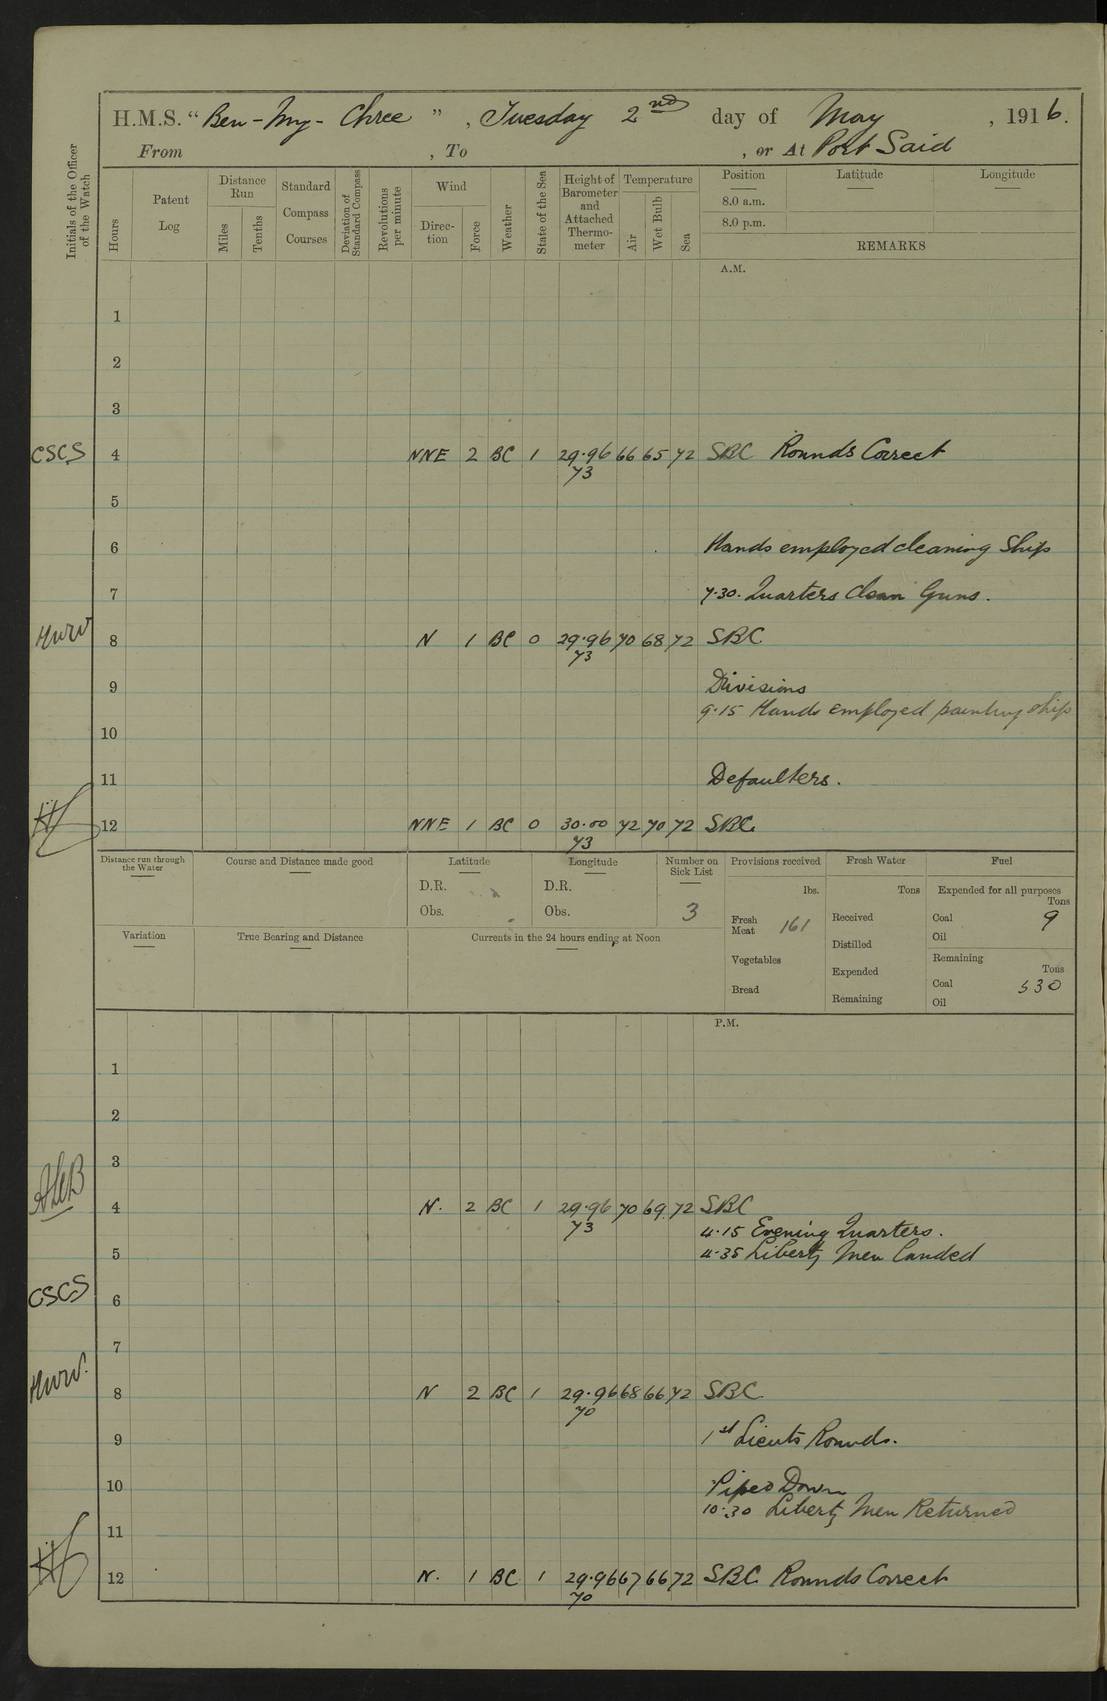 H.M.S. “ Ben-My-Chree ” , Tuesday 2nd day of May , 1916.
From , To , or At Port Said
Initials of the Officer of the Watch
Hours
Patent Log
Distance Run
Miles
Tenths
Standard Compass Courses
Deviation of Standard Compass
Revolutions per minute
Wind
Direction
Force
Weather
State of the Sea
Height of Barometer and Attached Thermometer
Temperature
Air
Wet Bulb
Sea
Position Latitude Longitude
8.0 a.m.
8.0 p.m.
REMARKS
A.M.
1
2
3
CSCS 4 NNE 2 BC 1 29.96 66 65 72 SBC Rounds Correct
73
5
6 Hands employed cleaning Ship
7 7.30. Quarters Clean Guns.
HWW 8 N 1 BC 0 29.96 70 68 72 SBC
73
9 Divisions
9.15 Hands employed painting ship
10
11 Defaulters.
12 NNE 1 BC 0 30.00 72 70 72 SBC
73
Distance run through the Water
Course and Distance made good
Latitude
D.R.
Obs.
Longitude
D.R.
Obs.
Number on Sick List
3
Provisions received
lbs.
Fresh Meat 161
Vegetables
Bread
Fresh Water
Tons
Received
Distilled
Expended
Remaining
Fuel
Expended for all purposes
Tons
Coal 9
Oil
Remaining
Tons
Coal 530
Oil
Variation
True Bearing and Distance
Currents in the 24 hours ending at Noon
P.M.
1
2
3
4 N. 2 BC 1 29.96 70 69 72 SBC
73
4.15 Evening Quarters.
5 4.35 Liberty Men Landed
CSCS 6
7
HWW. 8 N 2 BC 1 29.96 68 66 72 SBC
70
9 1st Lieuts Rounds.
10 Piped Down
10.30 Liberty Men Returned
11
12 N. 1 BC 1 29.96 67 66 72 SBC Rounds Correct
70